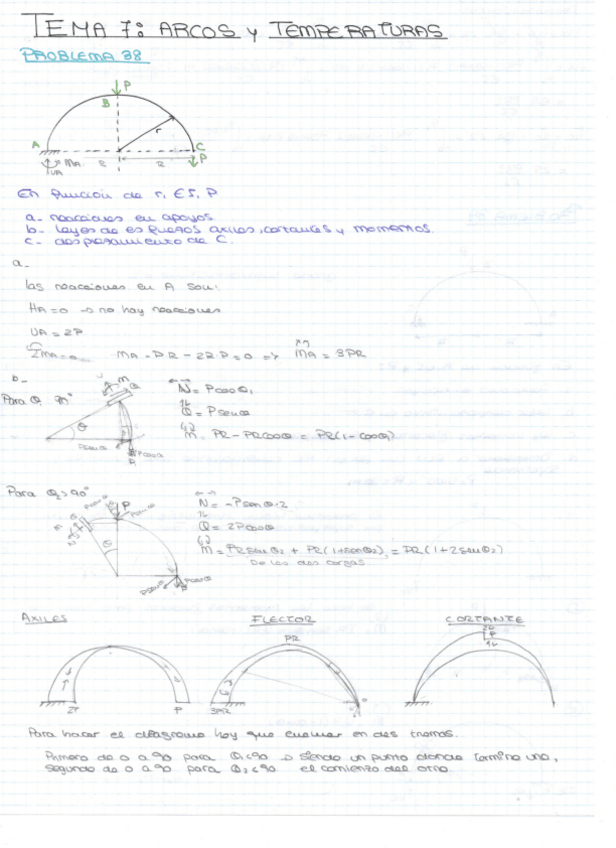 TEMA 7: ARCOS y TEMPERATURAS
PROBLEMA 38
P
B
r
A
C
P
MA
VA
R
R
En función de r, EI, P
a- reacciones en apoyos
b- leyes de esfuerzos axiles, cortantes y momentos.
c- desplazamiento de C.
a-
las reacciones en A son:
HA = 0 → no hay reacciones
VA = 2P
ΣMA = 0 MA - PR - 2R·P = 0 => MA = 3PR
b-
Para θ1 90°
M
Q
θ
Psenθ
Pcosθ
P
N = Pcosθ1
Q = Psenθ
M = PR - PRcosθ = PR(1-cosθ1)
Para θ2 > 90°
P
θ
Psenθ
Pcosθ
N = -Psenθ·2
Q = 2Pcosθ
M = PRsenθ2 + PR(1+senθ2) = PR(1+2senθ2)
De las dos cargas
AXILES
FLECTOR
CORTANTE
PR
2P
P
3PR
Para hacer el diagrama hay que evaluar en dos tramos.
Primero de 0 a 90 para θ1<90 → siendo un punto donde termina uno,
segundo de 0 a 90 para θ2<90 el comienzo del otro.